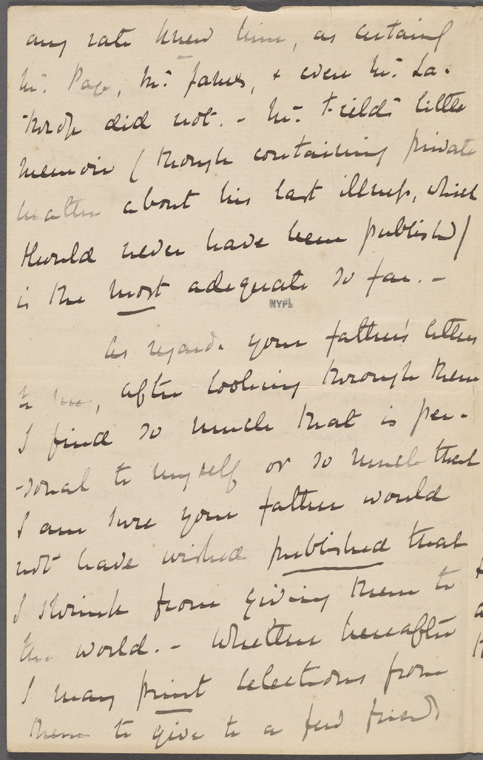 any rate knew him, as certainly
Mr. Page, Mr. James, & even Mr. La-
throp did not. - Mr. Fields' little
memoir (though containing private
matter about his last illness, which
should never have been published)
is the most adequate so far. -
NYPL
As regards your father's letters
to me, after looking through them
I find so much that is per-
-sonal to myself or so much that
I am sure your father would
not have wished published that
I shrink from giving them to
the world. - Whether hereafter
I may print selections from
them to give to a few friends